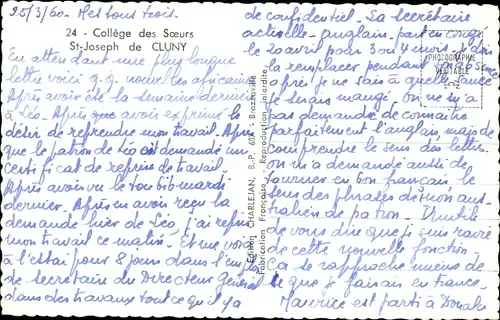 25/3/60 - Mes tous trois.
24 - Collège des Sœurs
St-Joseph de CLUNY
En attendant une plus longue
lettre voici q.q. nouvelles africaines
Après avoir été la semaine dernière
à Léo. Après que avoir exprimé le
désir de reprendre mon travail. Après
que le patron de Léo est demandé un
certificat de reprise de travail.
Après avoir vu le toubib mardi
dernier. Après en avoir reçu la
demande hier de Léo, j'ai repris
mon travail ce matin. Et me voici
à l'essai pour 8 jours dans l'emploi
de secrétaire du Directeur Général
dans des travaux tout ce qu'il y a
Edition CHARLEJAN, B. P. 607 - Brazzaville
Fabrication Française. Reproduction Interdite
PHOTOGRAPHIE
VERITABLE
de confidentiel. La secrétaire
actuelle - anglaise - part en congé
le 20 avril pour 3 ou 4 mois. Je dois
la remplacer pendant son absence
après je ne sais à quelle sauce
je serais mangé. On ne m'a
pas demandé de connaître
parfaitement l'anglais, mais de
comprendre le sens des lettres.
On m'a demandé aussi de
tourner en bon français le
sens des phrases de mon aus-
tralien de patron. Inutile
de vous dire que je suis ravie
de cette nouvelle fonction.
Ça se rapproche mieux de
ce que je faisais en France.
Maurice est parti à